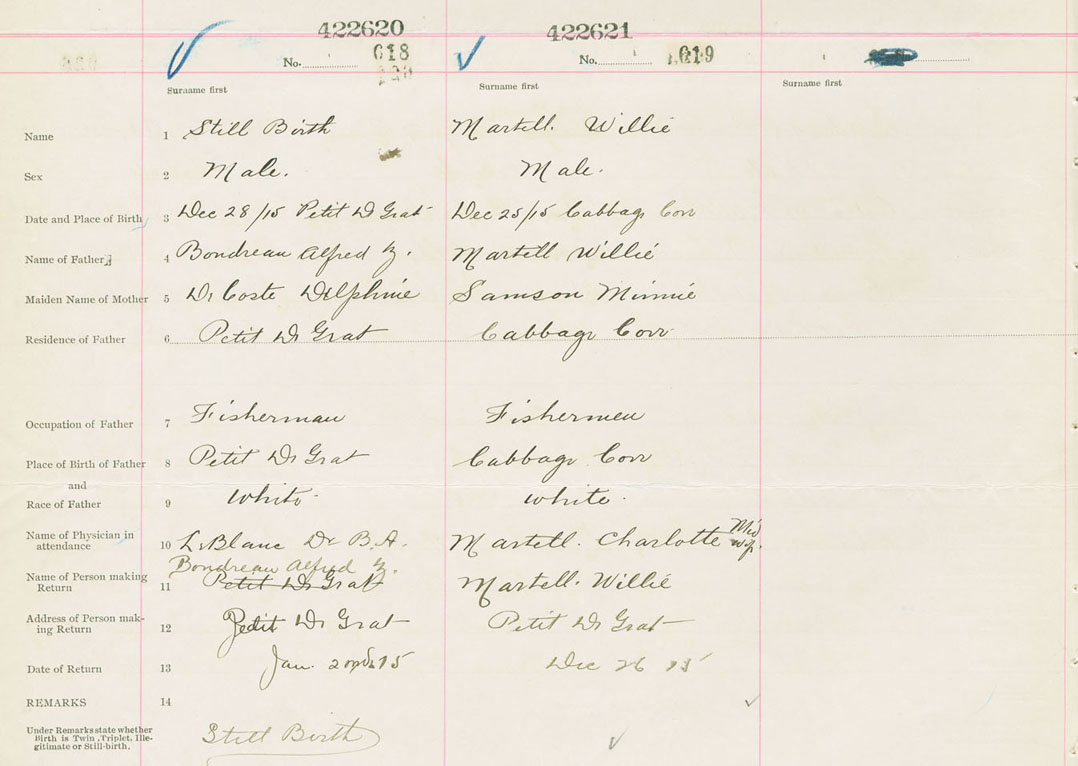 422620 422621
No. 018 No. 1019
Surname first Surname first Surname first
Name 1 Still Birth Martell. Willie
Sex 2 Male. Male.
Date and Place of Birth 3 Dec 28/15 Petit De Grat Dec 25/15 Cabbage Cove
Name of Father 4 Boudreau Alfred Z. Martell Willie
Maiden Name of Mother 5 De Coste Delphine Samson Minnie
Residence of Father 6 Petit De Grat Cabbage Cove
Occupation of Father 7 Fisherman Fishermen
Place of Birth of Father 8 Petit De Grat Cabbage Cove
and
Race of Father 9 White. White.
Name of Physician in
attendance 10 LeBlanc Dr B.A. Martell. Charlotte Mid wife.
Boudreau Alfred Z.
Name of Person making
Return 11 Petit De Grat Martell. Willie
Address of Person mak-
ing Return 12 Petit De Grat Petit De Grat
Date of Return 13 Jan. 2nd 15 Dec 26 15
REMARKS 14
Under Remarks state whether
Birth is Twin, Triplet, Ille-
gitimate or Still-birth. Still Birth